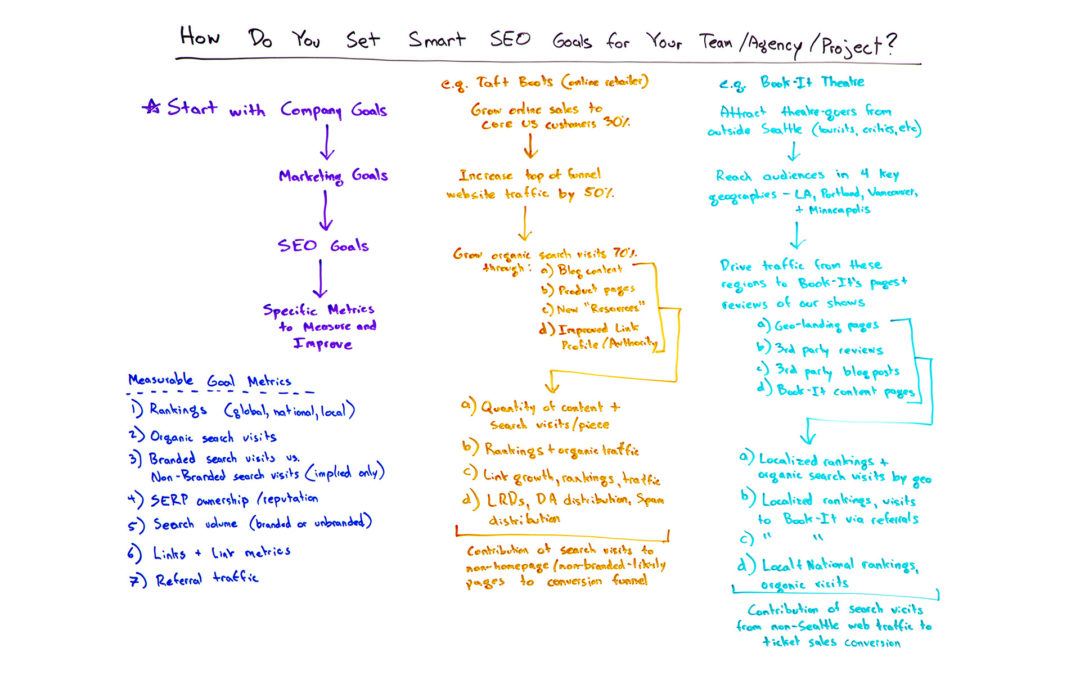 How Do You Set Smart SEO Goals for Your Team/Agency/Project?
☆ Start with Company Goals
Marketing Goals
SEO Goals
Specific Metrics
to Measure and
Improve
Measurable Goal Metrics
1) Rankings (global, national, local)
2) Organic search visits
3) Branded search visits vs.
Non-Branded search visits (implied only)
4) SERP ownership/reputation
5) Search volume (branded or unbranded)
6) Links + link metrics
7) Referral traffic
e.g. Taft Boots (online retailer)
Grow online sales to
core US customers 30%
Increase top of funnel
website traffic by 50%
Grow organic search visits 70%
through: a) Blog content
b) Product pages
c) New "Resources"
d) Improved Link
Profile/Authority
a) Quantity of content +
Search visits/piece
b) Rankings + organic traffic
c) Link growth, rankings, traffic
d) LRDs, DA distribution, Spam
distribution
Contribution of search visits to
non-homepage/non-branded-likely
pages to conversion funnel
e.g. Book-It Theatre
Attract theatre-goers from
outside Seattle (tourists, critics, etc)
Reach audiences in 4 key
geographies - LA, Portland, Vancouver,
+ Minneapolis
Drive traffic from these
regions to Book-It's pages +
reviews of our shows
a) Geo-landing pages
b) 3rd party reviews
c) 3rd party blog posts
d) Book-It content pages
a) Localized rankings +
organic search visits by geo
b) Localized rankings, visits
to Book-It via referrals
c) " "
d) Local + National rankings,
organic visits
Contribution of search visits
from non-Seattle web traffic to
ticket sales conversion